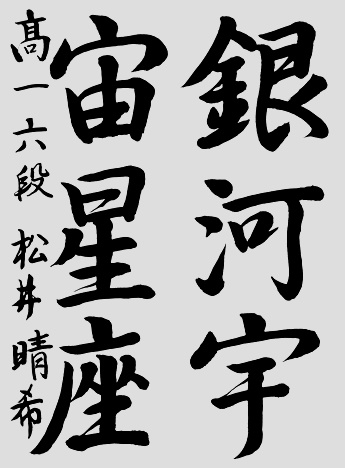 銀河宇
宙星座
髙一六段 松井晴希